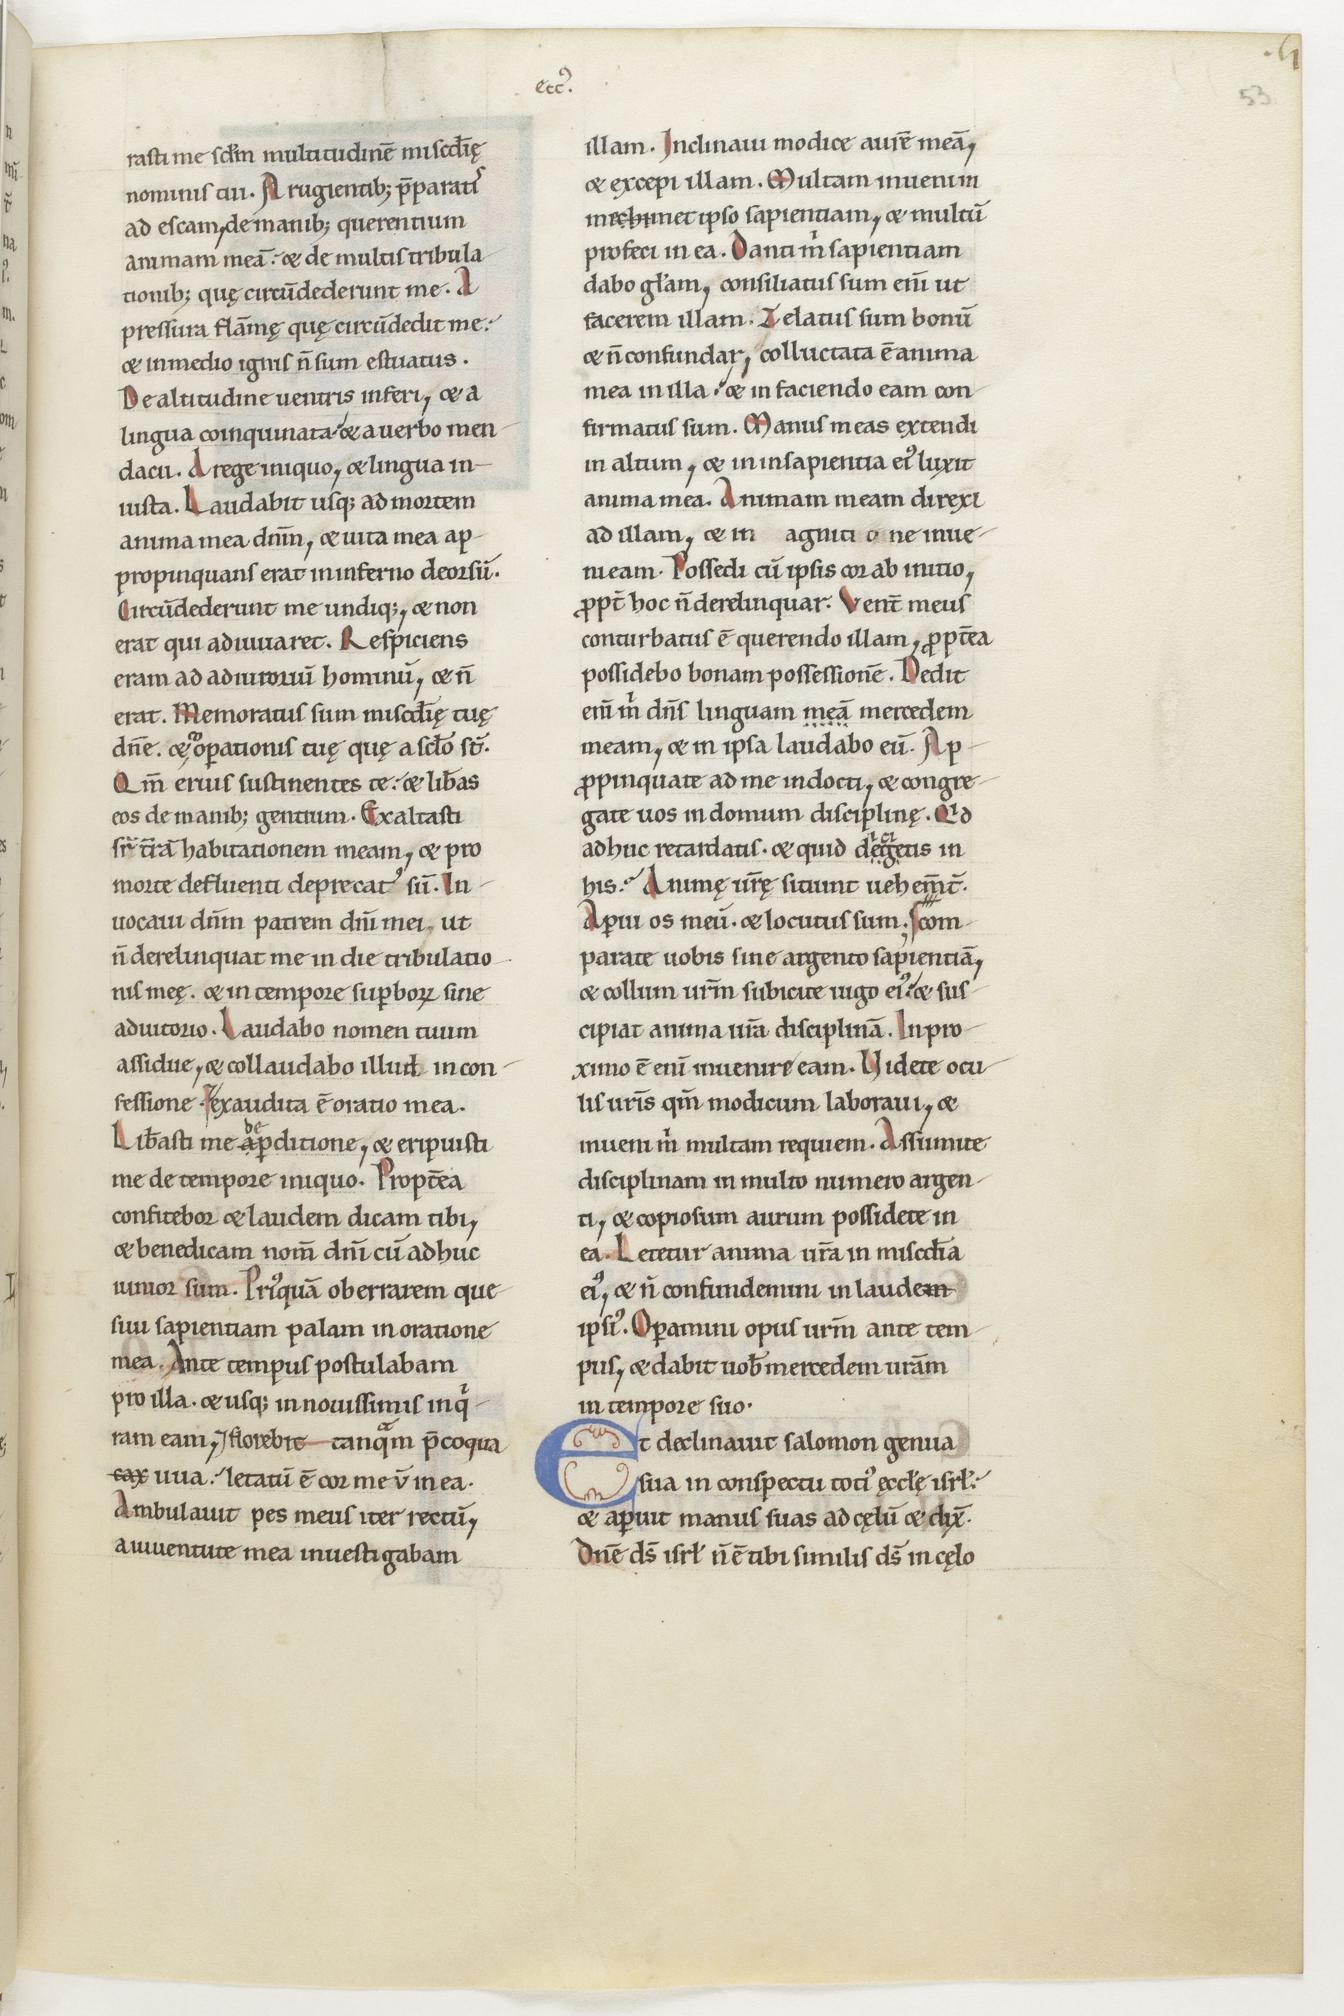 ecc᷒.
53
rasti me scd̄m multitudinē miscd̄ię
nominis tui. A rugientib; p̄parati᷒
ad escam, de manib; querentium
animam meā: & de multis tribula-
tionib; quę circūdederunt me. A
pressura flāmę quę circūdedit me:
& in medio ignis n̄ sum estuatus.
De altitudine uentris inferi, & a
lingua coinquinata & a uerbo men-
dacii. A rege iniquo, & lingua in-
iusta. Laudabit usq; ad mortem
anima mea dnm̄, & uita mea ap-
propinquans erat in inferno deorsū.
Circūdederunt me undiq;, & non
erat qui adiuuaret. Respiciens
eram ad adiutoriū hominū, & n̄
erat. Memoratus sum miscd̄ię tuę
dnē. & oꝑationis tuę quę a sclo̅ st̄.
Qm̄ eruis sustinentes te: & lib̄as
eos de manib; gentium. Exaltasti
sr̄ tr̄ā habitationem meam, & pro
morte defluenti deprecat᷒ sū. In-
uocaui dnm̄ patrem dnī mei, ut
n̄ derelinquat me in die tribulatio-
nis meę. & in tempore suꝑboꝝ sine
adiutorio. Laudabo nomen tuum
assidue, & collaudabo illud in con-
fessione. exaudita ē oratio mea.
Lib̄asti me de aꝑditione, & eripuisti
me de tempore iniquo. Propt̄ea
confitebor & laudem dicam tibi,
& benedicam nom̄ dnī cū adhuc
iunior sum. Pri᷒quā oberrarem que
siui sapientiam palam in oratione
mea. Ante tempus postulabam
pro illa. & usq; in nouissimis inq-
ram eam, florebit tanqm̄ p̄coqua
cax uua: letatū ē cor me v̄ in ea.
Ambulauit pes meus iter rectū,
a iuuentute mea inuestigabam
illam. Inclinaui modice aurē meā,
& excepi illam. Multam inueni in
mechimet ipso sapientiam, & multū
profeci in ea. Danti m̄ sapientiam
dabo gl̄am, consiliatus sum eni̅ ut
facerem illam. Zelatus sum bonū
& n̄ confundar, colluctata ē anima
mea in illa: & in faciendo eam con-
firmatus sum. Manus meas extendi
in altum, & in insapientia ei᷒ luxit
anima mea. Animam meam direxi
ad illam, & in agnitione inue-
ni eam. Possedi cū ipsis cor ab initio,
ꝓpt̄ hoc n̄ derelinquar. Vent̄ meus
conturbatus ē querendo illam, ꝓpt̄ea
possidebo bonam possessionē. Dedit
eni̅ m̄ dns̄ linguam meā mercedem
meam, & in ipsa laudabo eū. Ap-
ꝓpinquate ad me indocti, & congre-
gate uos in domum disciplinę. Qd
adhuc retardatis. & quid degetis in
his: Animę ur̄ę sitiunt uehem̄t̄.
Aꝑui os meū. & locutus sum; scom-
parate uobis sine argento sapientiā,
& collum urm̄ subicite iugo ei᷒: & sus-
cipiat anima ur̄a disciplinā. In pro-
ximo ē eni̅ inuenire eam. Videte ocu-
lis uris̄ qm̄ modicum laboraui, &
inueni m̄ multam requiem. Assumite
disciplinam in multo numero argen-
ti, & copiosum aurum possidete in
ea. Letetur anima ur̄a in miscd̄ia
ei᷒, & n̄ confundemini in laudem
ipsi᷒. Oꝑamini opus urm̄ ante tem-
pus, & dabit uob̄ mercedem ur̄am
in tempore suo.
Et declinauit salomon genua
sua in conspectu toti᷒ ęccl̄ę isrl̄:
& aꝑuit manus suas ad cęlū & dix̄.
Dnē ds̄ isrl̄ n̄ ē tibi similis ds̄ in cęlo